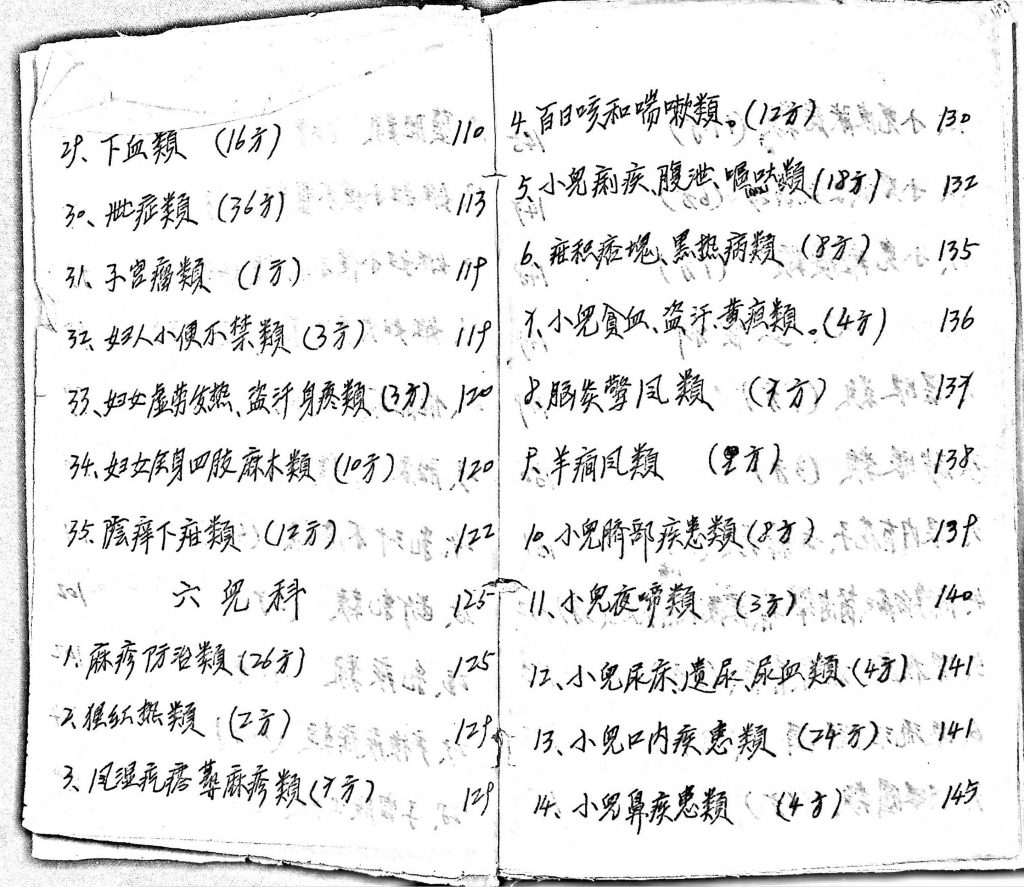 29、下血類 (16方) 110
30、泚症類 (36方) 113
31、子宮癰類 (1方) 119
32、妇人小便不禁類 (3方) 119
33、妇女虚劳发热、盗汗身疼類 (3方) 120
34、妇女全身四肢麻木類 (10方) 120
35、陰痒下疳類 (12方) 122
六 兒科 125
1、麻疹防治類 (26方) 125
2、猩紅热類 (2方) 129
3、风湿疙瘩蕁麻疹類 (7方) 129
4、百日咳和喘嗽類。(12方) 130
5、小兒痢疾、腹泄、嘔吐類 (18方) 132
6、疳积痞塊、黑热病類 (8方) 135
7、小兒貧血、盗汗、黄疸類。(4方) 136
8、脑炎驚风類 (7方) 137
9、羊痫风類 (2方) 138
10、小兒臍部疾患類 (8方) 139
11、小兒夜啼類 (3方) 140
12、小兒尿床、遺尿、尿血類 (4方) 141
13、小兒口内疾患類 (24方) 141
14、小兒鼻疾患類 (4方) 145